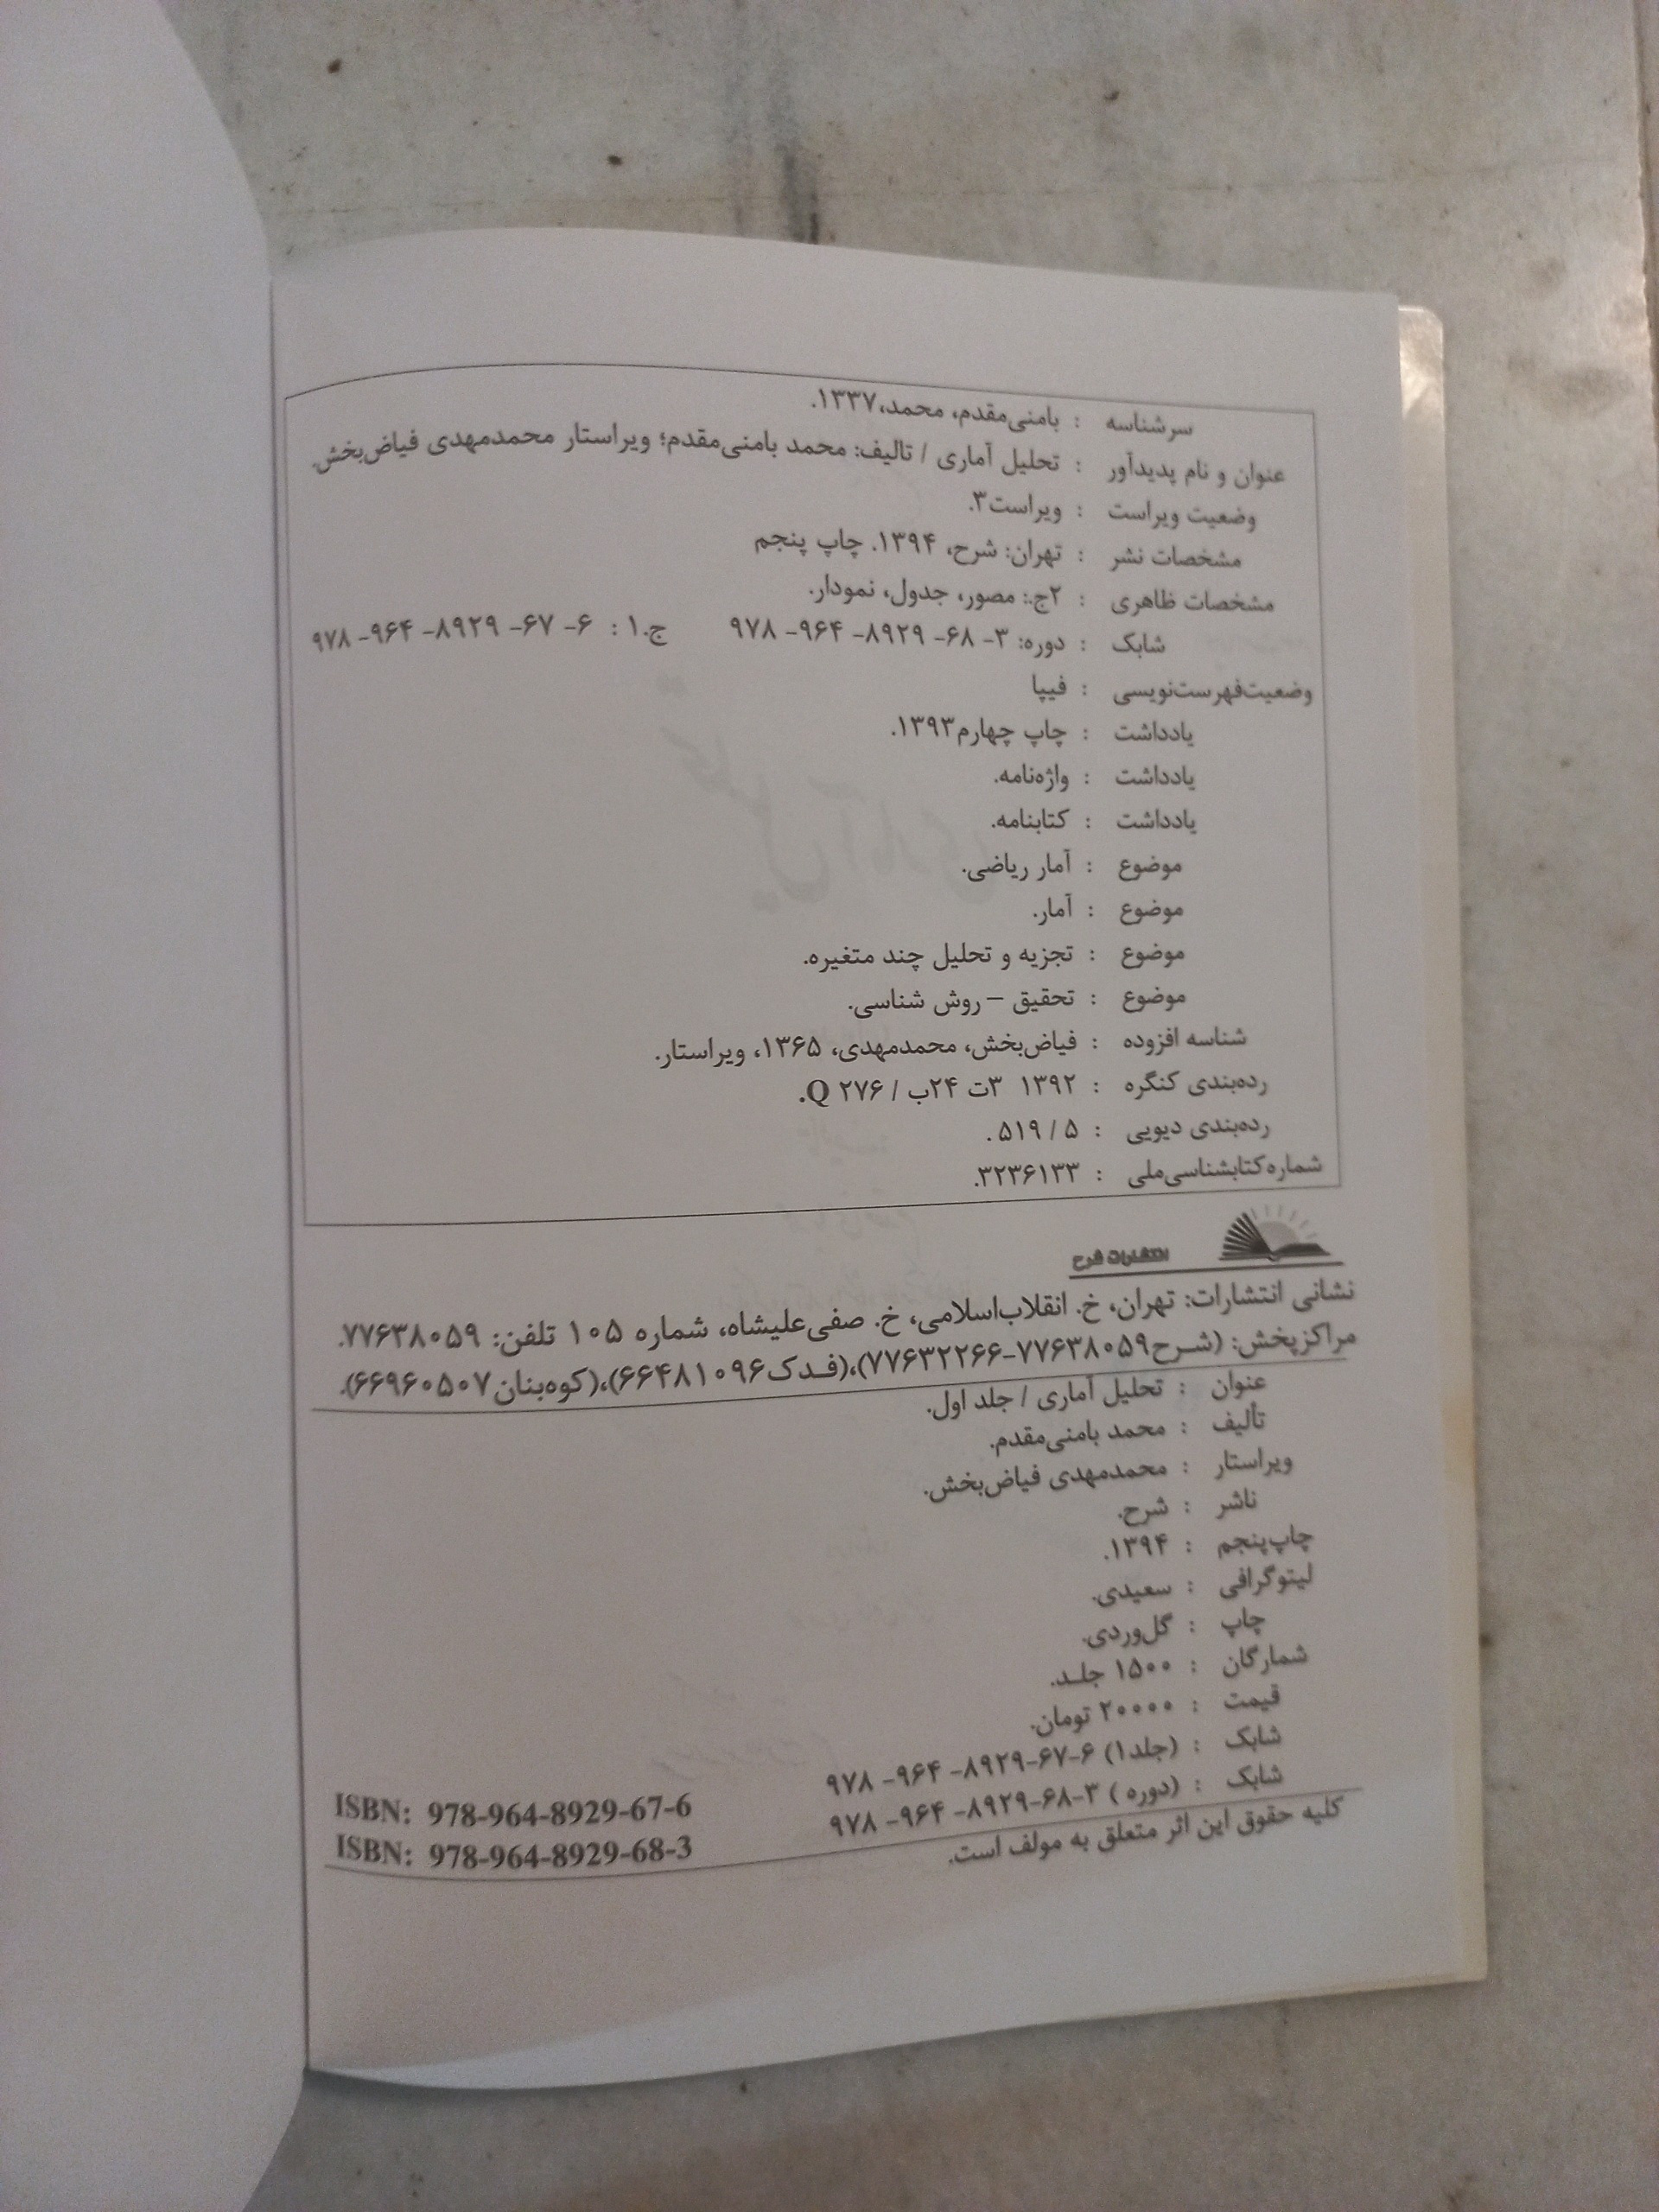 سرشناسه : بامنی‌مقدم، محمد،۱۳۳۷.
عنوان و نام پدیدآور : تحلیل آماری / تالیف: محمد بامنی‌مقدم؛ ویراستار محمدمهدی فیاض‌بخش.
وضعیت ویراست : ویراست۳.
مشخصات نشر : تهران: شرح، ۱۳۹۴. چاپ پنجم
مشخصات ظاهری : ۲ج.: مصور، جدول، نمودار.
شابک : دوره: ۳- ۶۸- ۸۹۲۹- ۹۶۴- ۹۷۸ ج.۱ : ۶- ۶۷- ۸۹۲۹- ۹۶۴- ۹۷۸
وضعیت‌فهرست‌نویسی : فیپا
یادداشت : چاپ چهارم۱۳۹۳.
یادداشت : واژه‌نامه.
یادداشت : کتابنامه.
موضوع : آمار ریاضی.
موضوع : آمار.
موضوع : تجزیه و تحلیل چند متغیره.
موضوع : تحقیق – روش شناسی.
شناسه افزوده : فیاض‌بخش، محمدمهدی، ۱۳۶۵، ویراستار.
رده‌بندی کنگره : ۱۳۹۲ ۳ت ۲۴ب / ۲۷۶ Q.
رده‌بندی دیویی : ۵ / ۵۱۹ .
شماره‌کتابشناسی‌ملی : ۳۲۳۶۱۳۳.
انتشارات شرح
نشانی انتشارات: تهران، خ. انقلاب‌اسلامی، خ. صفی‌علیشاه، شماره ۱۰۵ تلفن: ۷۷۶۳۸۰۵۹.
مراکزپخش: (شـرح۷۷۶۳۸۰۵۹-۷۷۶۳۲۲۶۶)،(فـدک۶۶۴۸۱۰۹۶)،(کوه‌بنان۶۶۹۶۰۵۰۷).
عنوان : تحلیل آماری / جلد اول.
تألیف : محمد بامنی‌مقدم.
ویراستار : محمدمهدی فیاض‌بخش.
ناشر : شرح.
چاپ‌پنجم : ۱۳۹۴.
لیتوگرافی : سعیدی.
چاپ : گل‌وردی.
شمارگان : ۱۵۰۰ جلـد.
قیمت : ۲۰۰۰۰ تومان.
شابک : (جلد۱) ۶-۶۷-۸۹۲۹- ۹۶۴- ۹۷۸ ISBN: 978-964-8929-67-6
شابک : (دوره ) ۳-۶۸-۸۹۲۹- ۹۶۴- ۹۷۸ ISBN: 978-964-8929-68-3
کلیه حقوق این اثر متعلق به مولف است.